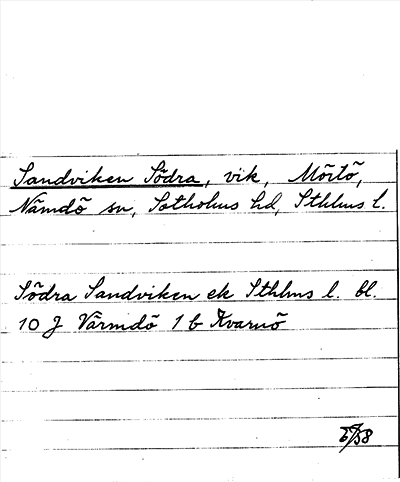 Sandviken Södra, vik, Mörtö,
Nämdö sn, Sotholms hd, Sthlms l.
Södra Sandviken ek Sthlms l. bl.
10 J Värmdö 1 b Kvarnö